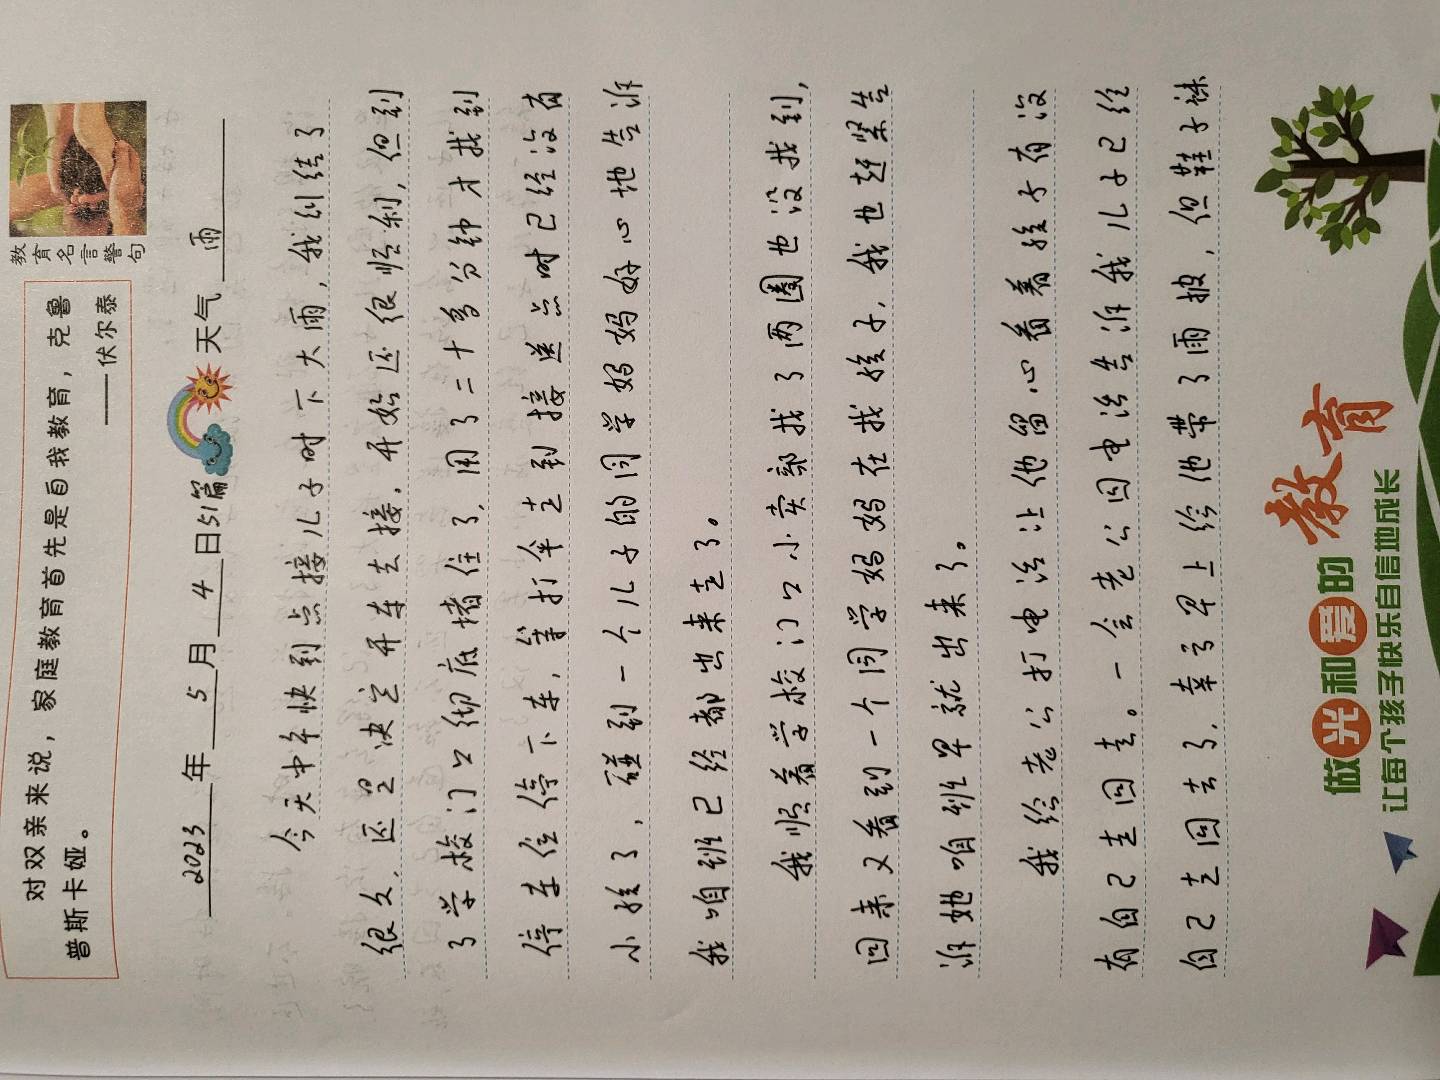 教育名言警句
对双亲来说，家庭教育首先是自我教育，克鲁
普斯卡娅。
——伏尔泰
2023年5月4日51篇 天气 雨
今天中午快到点接儿子时下大雨，我纠结了
很久，还是决定开车去接，开始还很顺利，但到
了学校门口彻底堵住了，用了二十多分钟才找到
停车位停下车，等打伞走到接送点时已经没有
小孩了，碰到一个儿子的同学妈妈好心地告诉
我咱班已经都出来走了。
我顺着学校门口小卖部找了两圈也没找到，
回来又看到一个同学妈妈在找孩子，我也赶紧告
诉她咱班早就出来了。
我给老公打电话让他留心看着孩子有没
有自己走回去。一会老公回电话告诉我儿子已经
自己走回去了，幸亏早上给他带了雨披，但鞋子袜
做光和爱的教育
让每个孩子快乐自信地成长